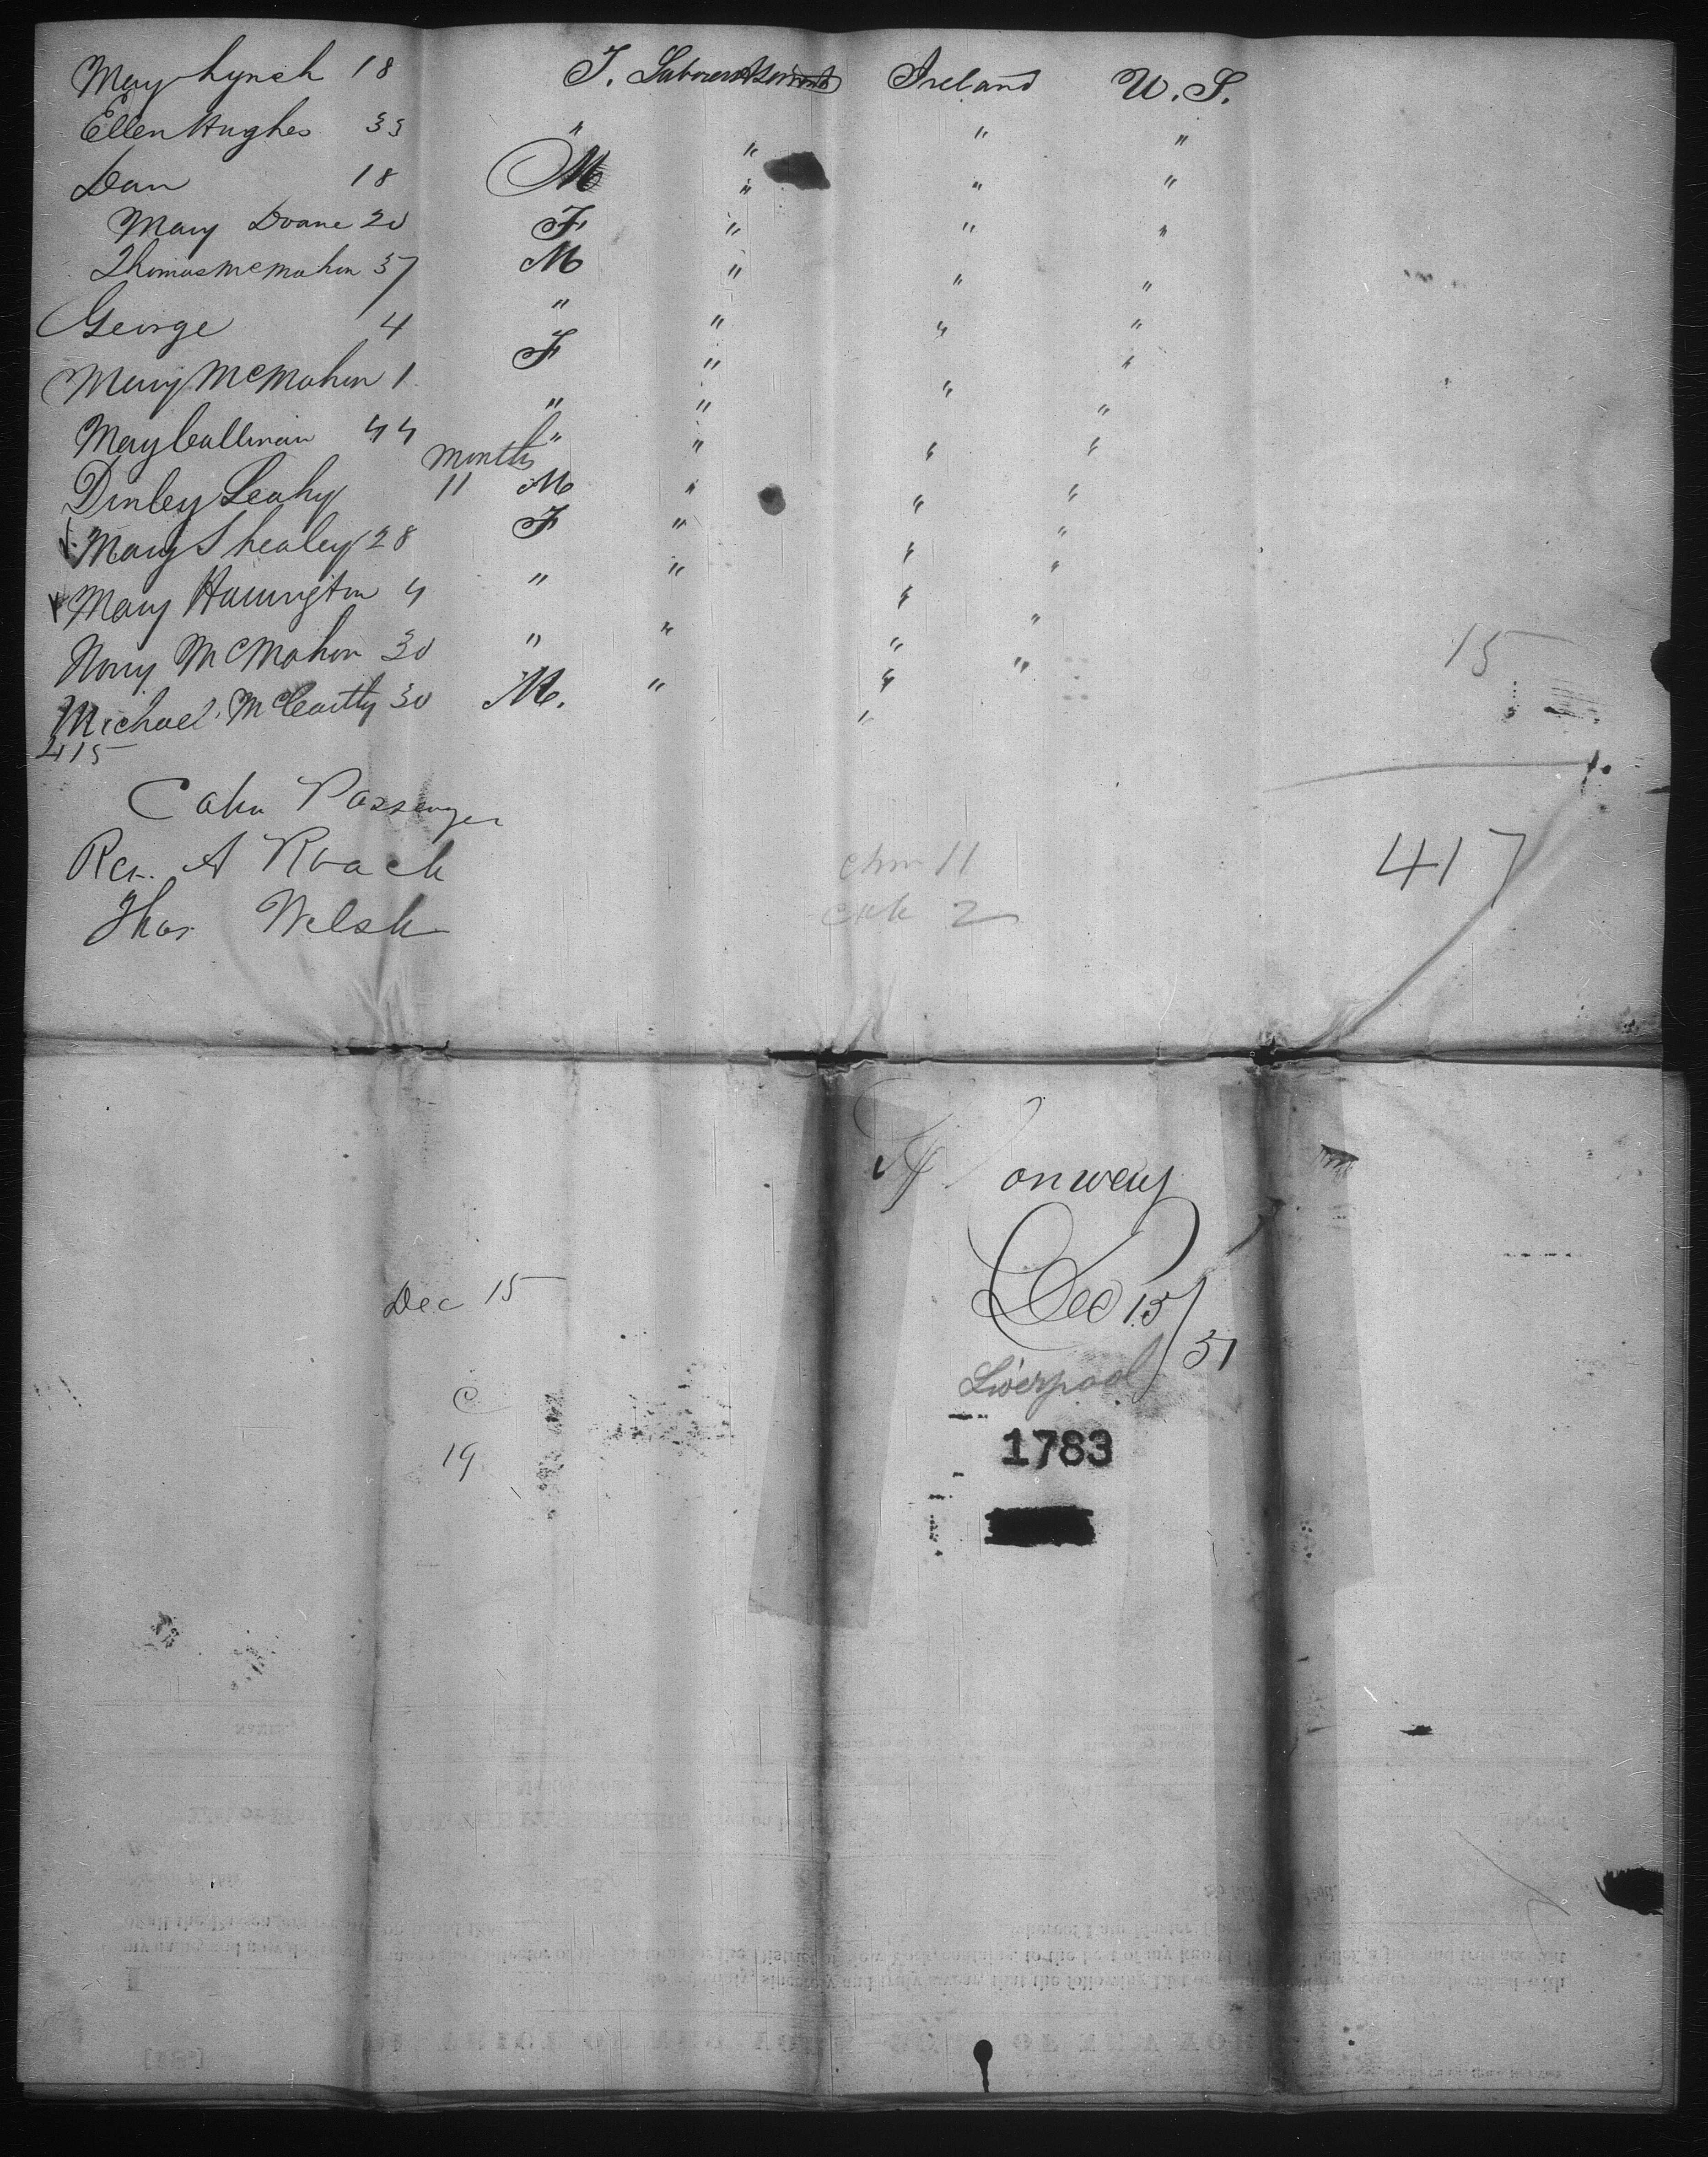 Mary Lynch 18 F. Laborer Ireland U.S.
Ellen Hughes 33 " " " "
Dan 18 M " " "
Mary Doane 20 F " " "
Thomas McMahon 37 M " " "
George 4 " " " "
Mary McMahon 1 F " " "
Mary Cullinan 44 " " " "
Dinley Leahy 11 months M " " "
Mary Shealey 28 F " " "
Mary Harrington 4 " " " "
Nony McMahon 30 " " " "
Michael McCarthy 30 M. " "
415
15
Cabn Passenger
Rev. A Roach
Thos Welsh
chn 11
2
417
onway
Dec 15
Dec 15/51
Liverpool
C
19
1783